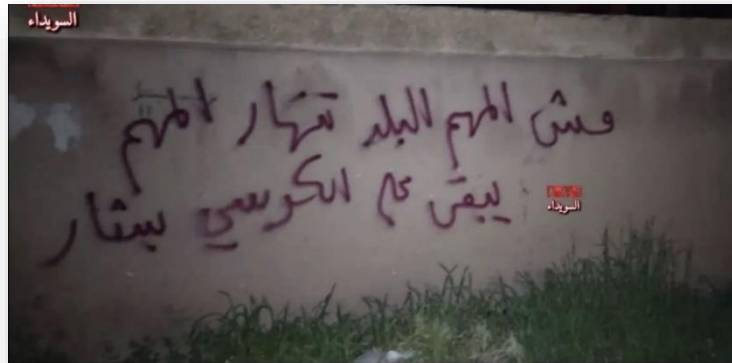 السويداء
مش المهم البلد تنهار المهم
يبقى عل الكرسي بشار
السويداء